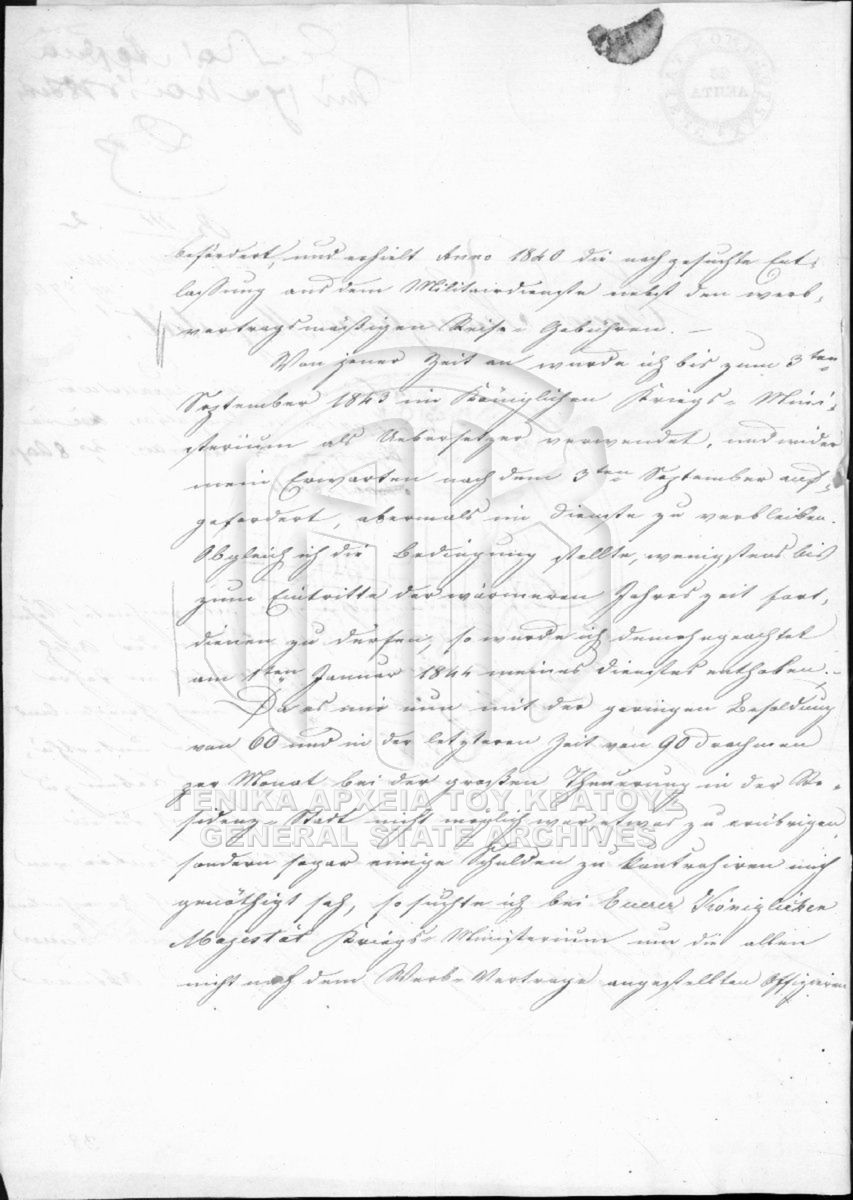 befördert, und erhielt Anno 1840 die nachgesuchte Ent-
lassung aus dem Militairdienste nebst den werb-
vertragsmäßigen Reise-Gebühren. –
Von jener Zeit an wurde ich bis zum 3ten
September 1843 im Königlichen Kriegs-Mini-
sterium als Uebersetzer verwendet, und wider
mein Erwarten nach dem 3ten September auf-
gefordert, abermals im Dienste zu verbleiben.
Obgleich ich die Bedingung stellte, wenigstens bis
zum Eintritte der wärmeren Jahreszeit fort,
dienen zu dürfen, so wurde ich demohngeachtet
am 1ten Januar 1844 meines Dienstes enthoben. –
Da es mir nun mit der geringen Besoldung
von 60 und in der letzteren Zeit von 90 Drachmen
per Monat bei der großen Theuerung in der Re-
sidenz-Stadt nicht möglich war etwas zu erübrigen
sondern sogar einige Schulden zu kontrahiren mich
genöthigt sah, so suchte ich bei Euerer Königlichen
Majestät Kriegs-Ministerium um die allen
nicht nach dem Werb-Vertrage angestellten Offizieren
ΓΕΝΙΚΑ ΑΡΧΕΙΑ ΤΟΥ ΚΡΑΤΟΥΣ
GENERAL STATE ARCHIVES